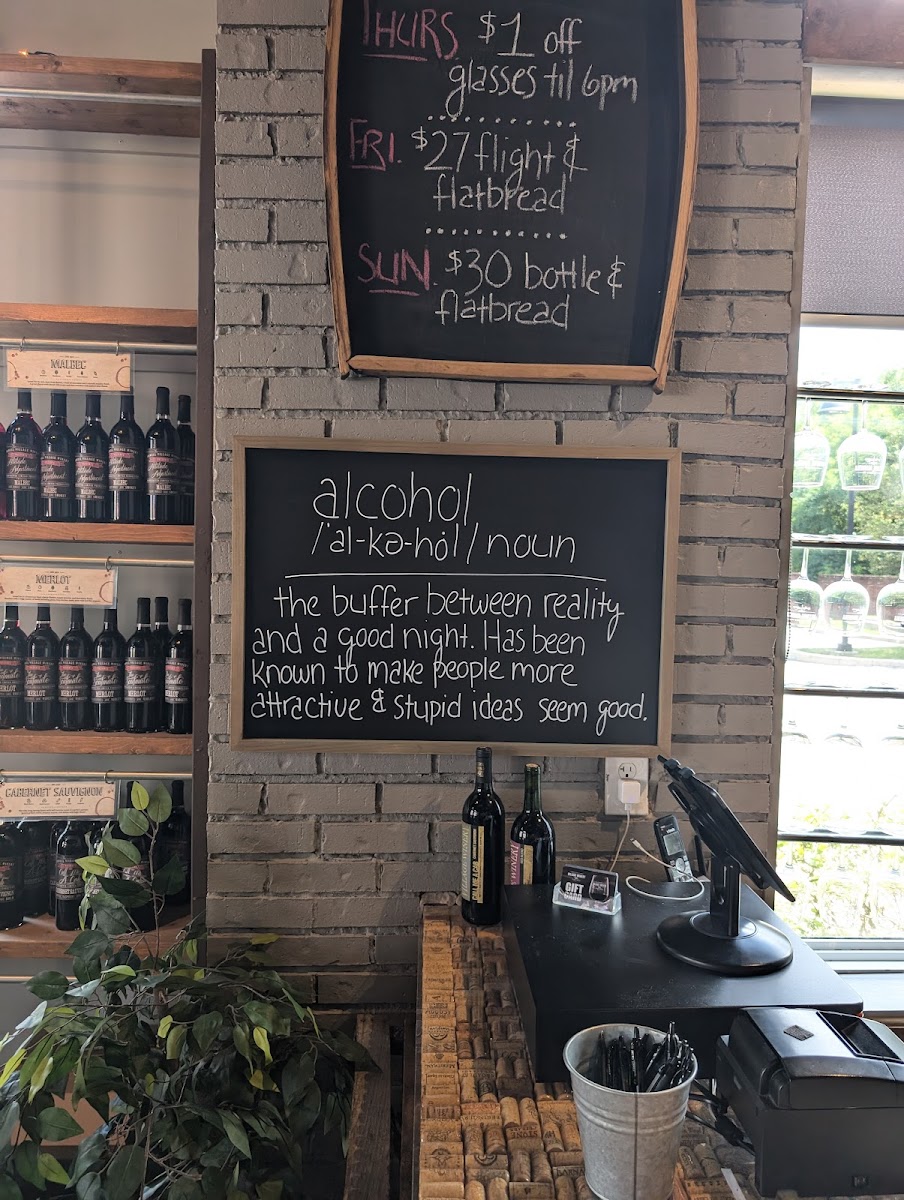 THURS $1 off
glasses til 6pm
FRI. $27 flight &
flatbread
SUN. $30 bottle &
flatbread
MALBEC
MERLOT
CABERNET SAUVIGNON
alcohol
/'al-kə-hȯl/ noun
the buffer between reality
and a good night. Has been
known to make people more
attractive & stupid ideas seem good.
MALBEC
MERLOT
GIFT
CARD